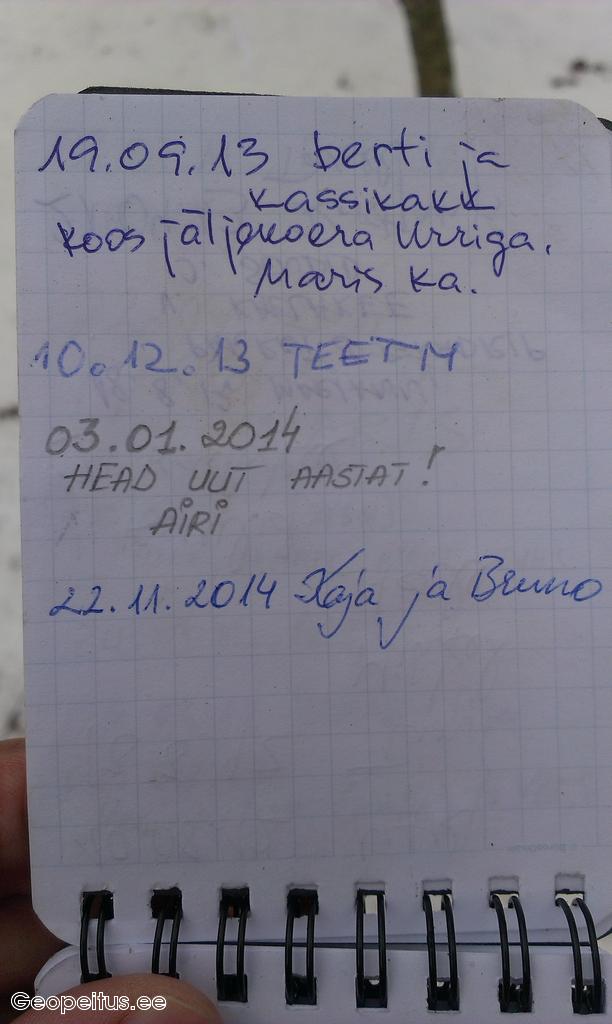 19.09.13 berti ja
kassikakk
koos jäljekoera Urriga.
Maris ka.
10.12.13 TEETM
03.01.2014
HEAD UUT AASTAT!
AIRI
22.11.2014 Kaja ja Bruno
Geopeitus.ee